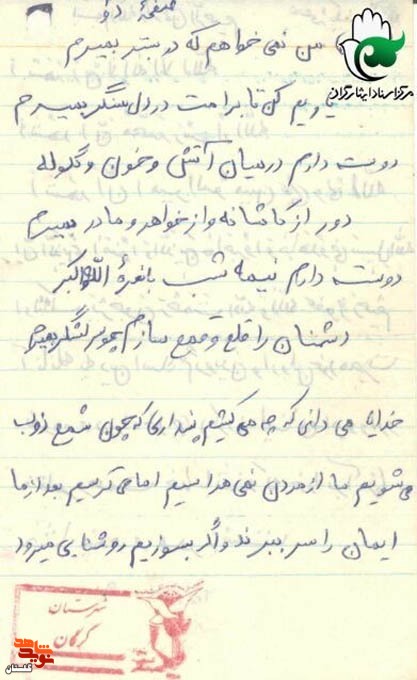 صفحهٔ دو
من نمی خواهم که در بستر بمیرم
یاریم کن تا برامت در دل سنگر بمیرم
مرکز اسناد ایثارگران
دوست دارم در میان آتش و خون و گلوله
دور از کاشانه و از خواهر و مادر بمیرم
دوست دارم نیمه شب با نعرهٔ الله اکبر
دشمنان را قلع و قمع سازم چو بر لشگر بمیرم
خدایا می دانی که چه می کشیم پنداری که چون شمع ذوب
می شویم ما از مردن نمی هراسیم اما می ترسیم بعد از ما
ایمان را سر ببرند و اگر بسوزیم روشنایی میرود
شهرستان
گرگان
نوید شاهد
گلستان